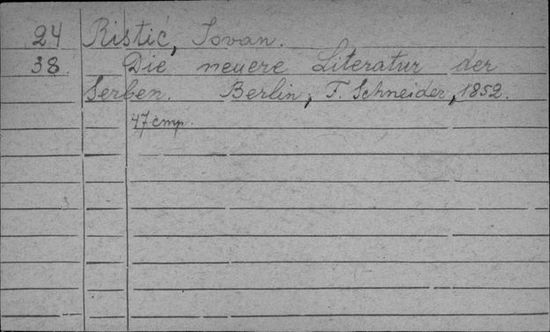 24 Ristić, Jovan.
38 Die neuere Literatur der
Serben. Berlin, F. Schneider, 1852.
47 cmp.